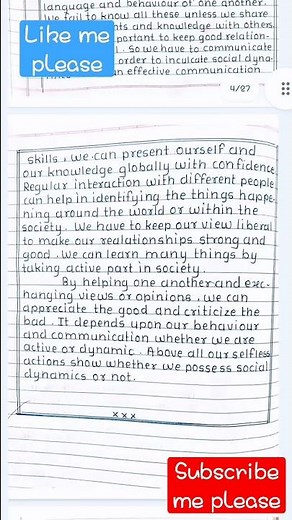 language and behaviour of one another.
We fail to know all these unless we share
Like me please
nts and knowledge with others.
portant to keep good relation-
. So we have to communicate
order to inculcate social dyna-
an effective communication
4/27
skills, we can present ourself and
our knowledge globally with confidence.
Regular interaction with different people
can help in identifying the things happe-
ning around the world or within the
society. We have to keep our view liberal
to make our realationships strong and
good. We can learn many things by
taking active part in society.
By helping one another and exc-
hanging views or opinions, we can
appreciate the good and criticize the
bad. It depends upon our behaviour
and communication whether we are
active or dynamic. Above all our selfless
actions show whether we possess social
dynamics or not.
xxx
Subscribe
me please